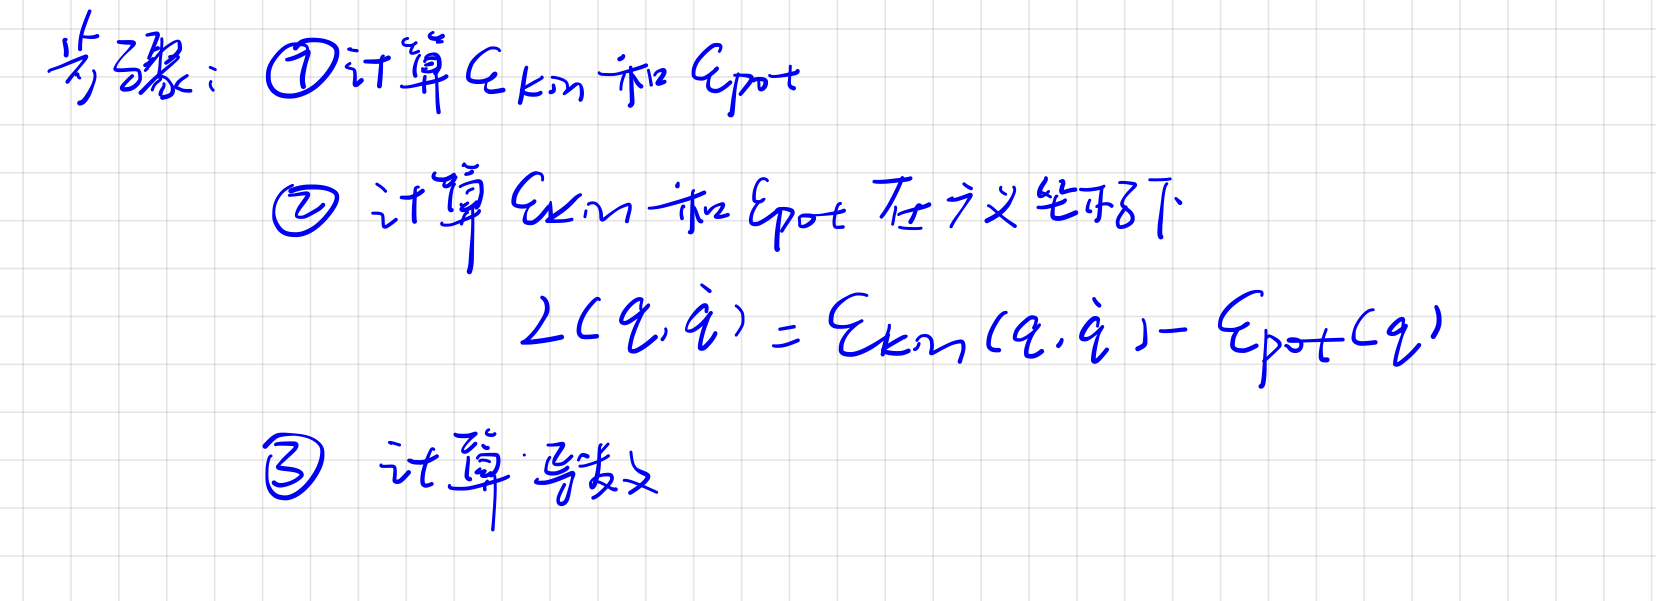 步骤: ①计算 Ekin 和 Epot
② 计算 Ekin 和 Epot 在广义坐标下
L(q, q̇) = Ekin(q, q̇) - Epot(q)
③ 计算导数